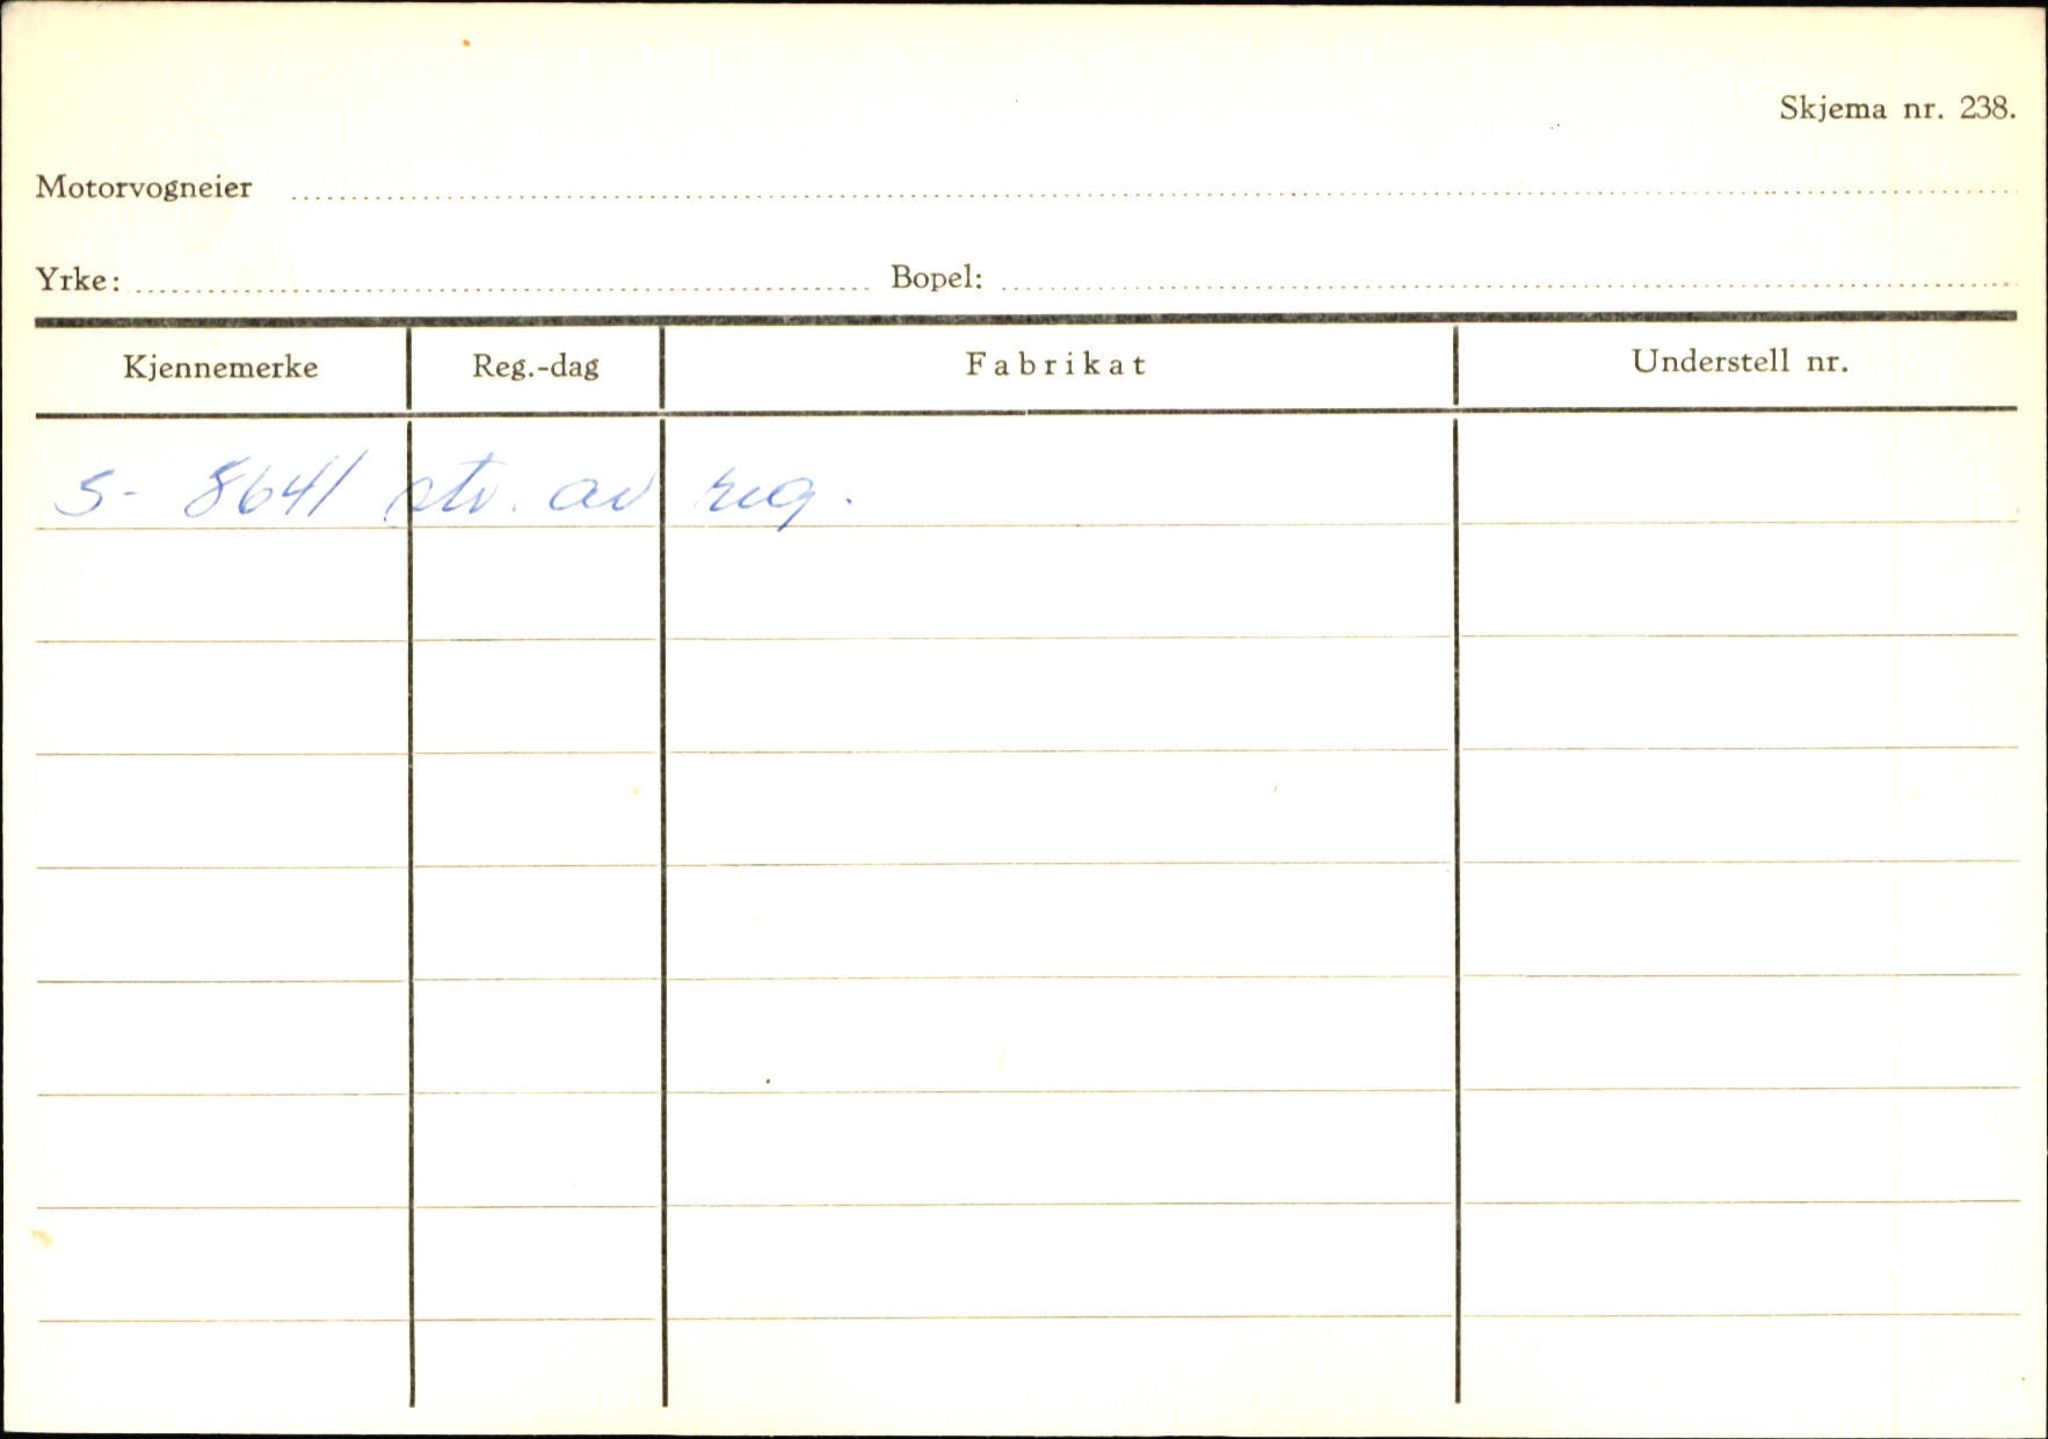 Skjema nr. 238.
Motorvogneier
Yrke: Bopel:
Kjennemerke Reg.-dag Fabrikat Understell nr.
S- 8641 str. av reg.